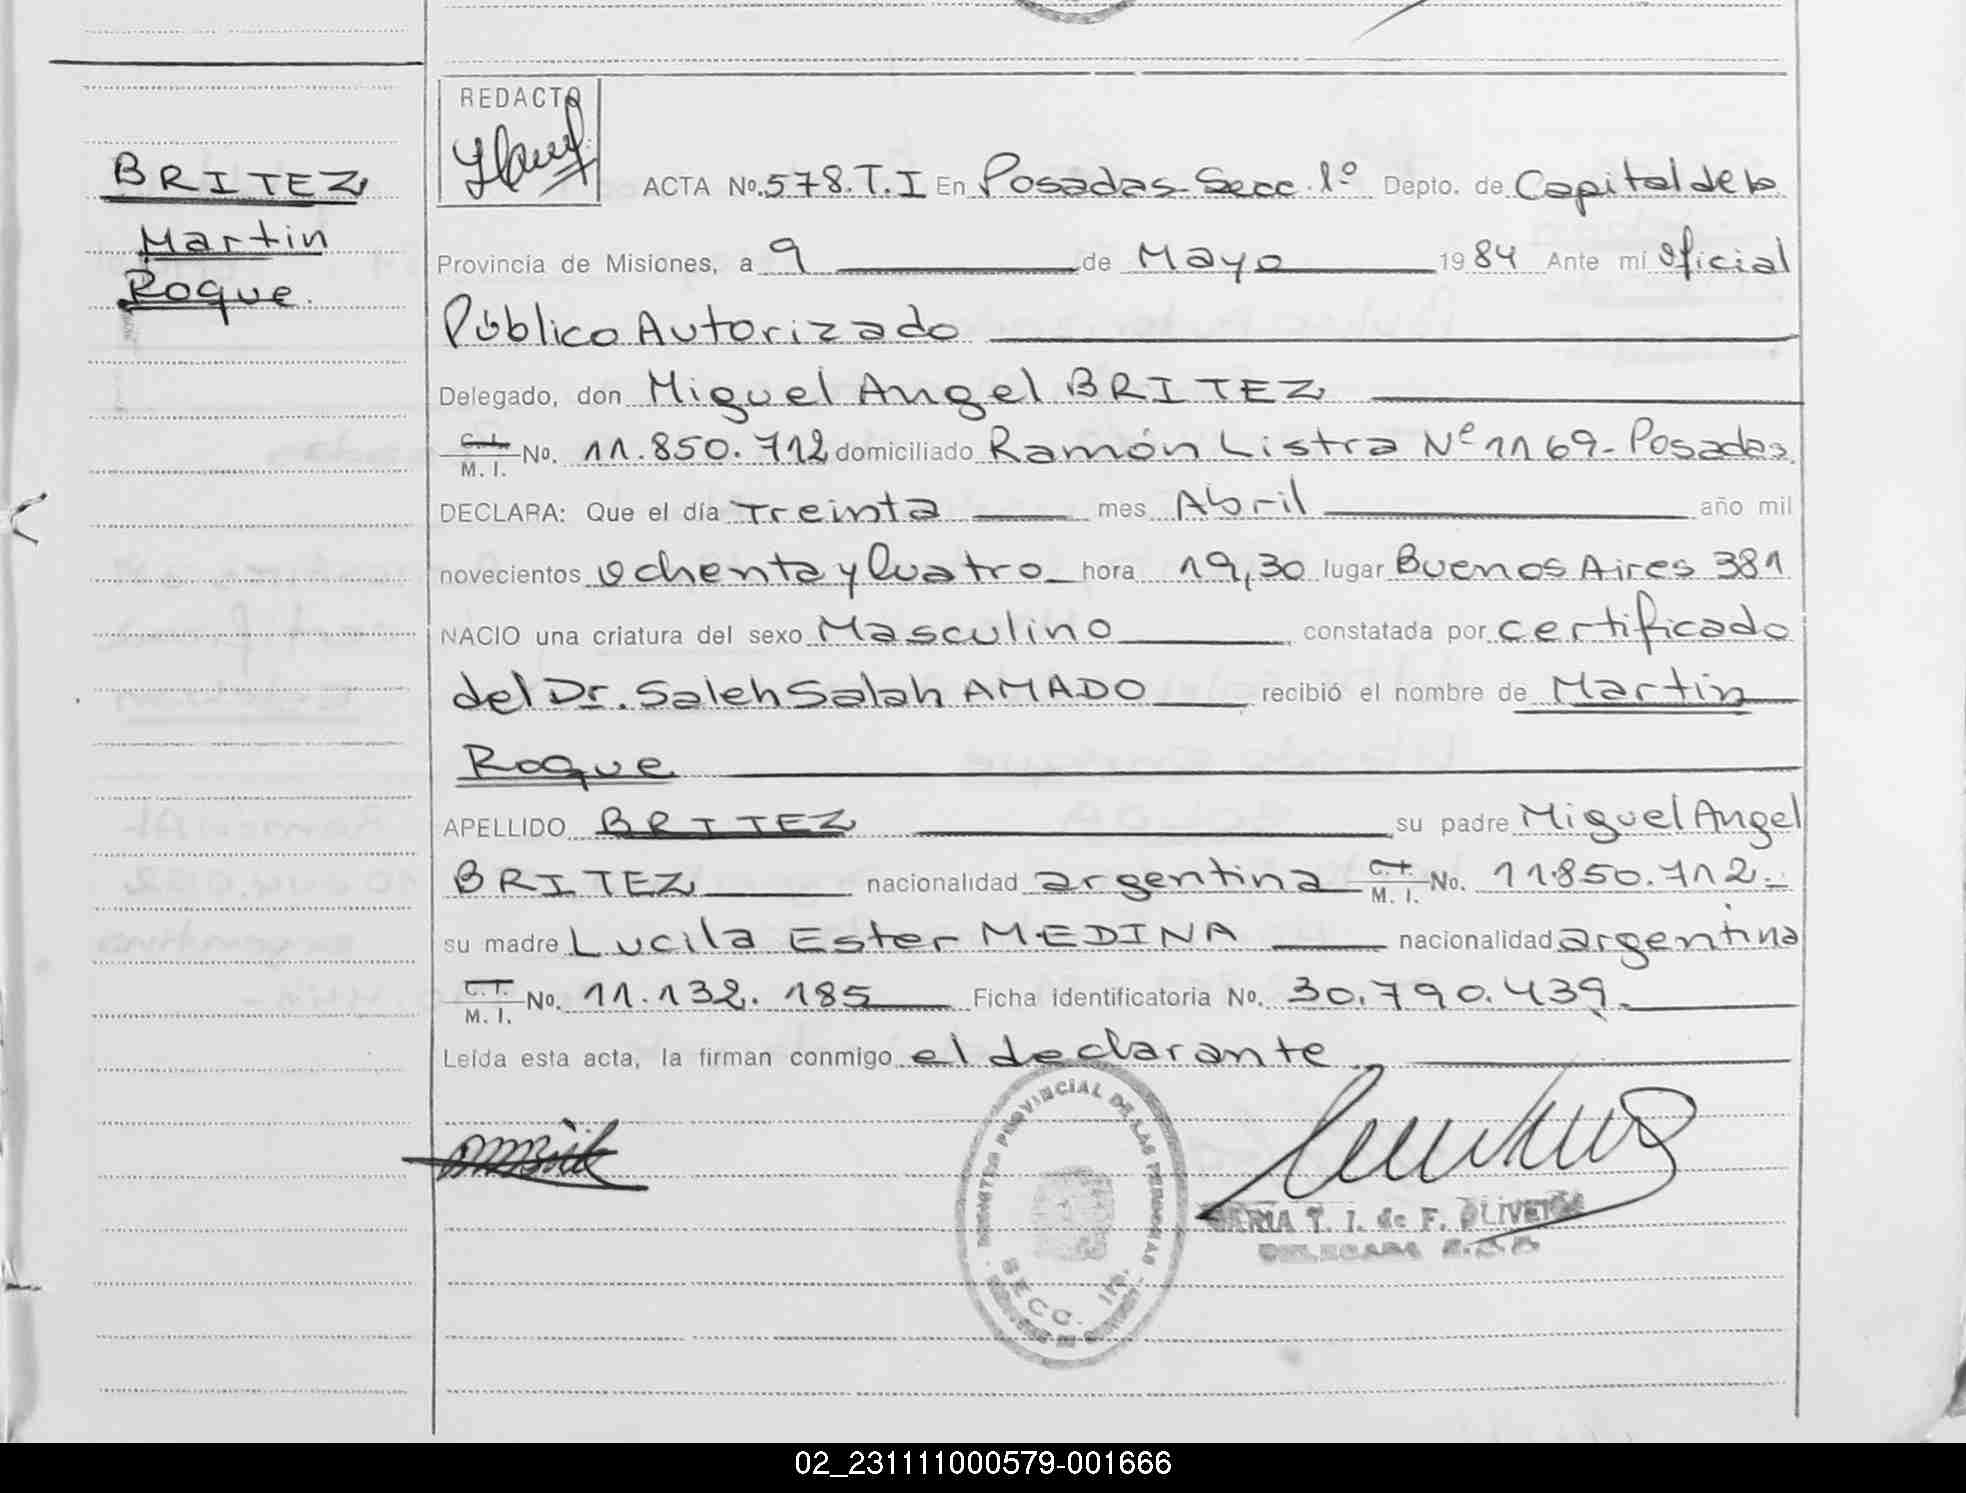 BRITEZ
Martin
Roque.
REDACTO
ACTA No. 578.T.I En Posadas-Secc.1º Depto. de Capital de la
Provincia de Misiones, a 9 de Mayo 1984 Ante mí Oficial
Público Autorizado
Delegado, don Miguel Angel BRITEZ
C.I. M. I. No. 11.850.712 domiciliado Ramón Listra Nº 1169-Posadas.
DECLARA: Que el día Treinta mes Abril año mil
novecientos Ochenta y Cuatro hora 19,30 lugar Buenos Aires 381
NACIO una criatura del sexo Masculino constatada por certificado
del Dr. Saleh Salah AMADO recibió el nombre de Martin
Roque
APELLIDO BRITEZ su padre Miguel Angel
BRITEZ nacionalidad argentina C.I. M. I. No. 11.850.712.-
su madre Lucila Ester MEDINA nacionalidad argentina
C.I. M. I. No. 11.132.185 Ficha identificatoria No. 30.790.439.
Leída esta acta, la firman conmigo el declarante
PROVINCIAL DE LAS PERSONAS
SECC. 1ra.
MARIA T. I. de F. OLIVEIRA
DELEGADA
02_231111000579-001666